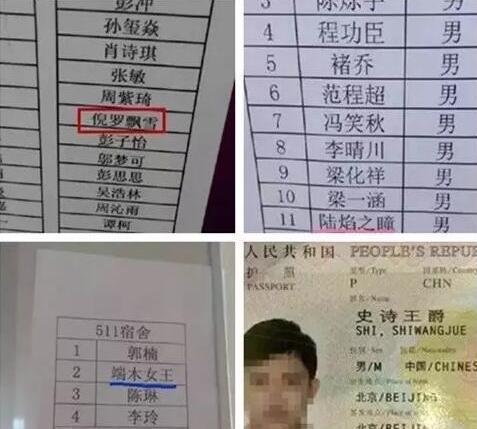 彭冲
孙玺焱
肖诗琪
张敏
周紫琦
倪罗飘雪
彭子怡
郭梦可
彭思思
吴浩林
周沁雨
谭柯
3 陈烁宇 男
4 程功臣 男
5 褚乔 男
6 范程超 男
7 冯笑秋 男
8 李晴川 男
9 梁化祥 男
10 梁一涵 男
11 陆焰之瞳 男
511宿舍
1 郭楠
2 端木女王
3 陈琳
4 李玲
人民共和国 PEOPLE'S REPU
护照 类型/Type 国家码/Country
PASSPORT P CHN
姓名/Name
史诗王爵
SHI, SHIWANGJUE
性别/Sex 国籍/Nationality
男/M 中国/CHINES
出生地点/Place of birth
北京/BEIJING
签发地点/Place of
北京/BEIJI